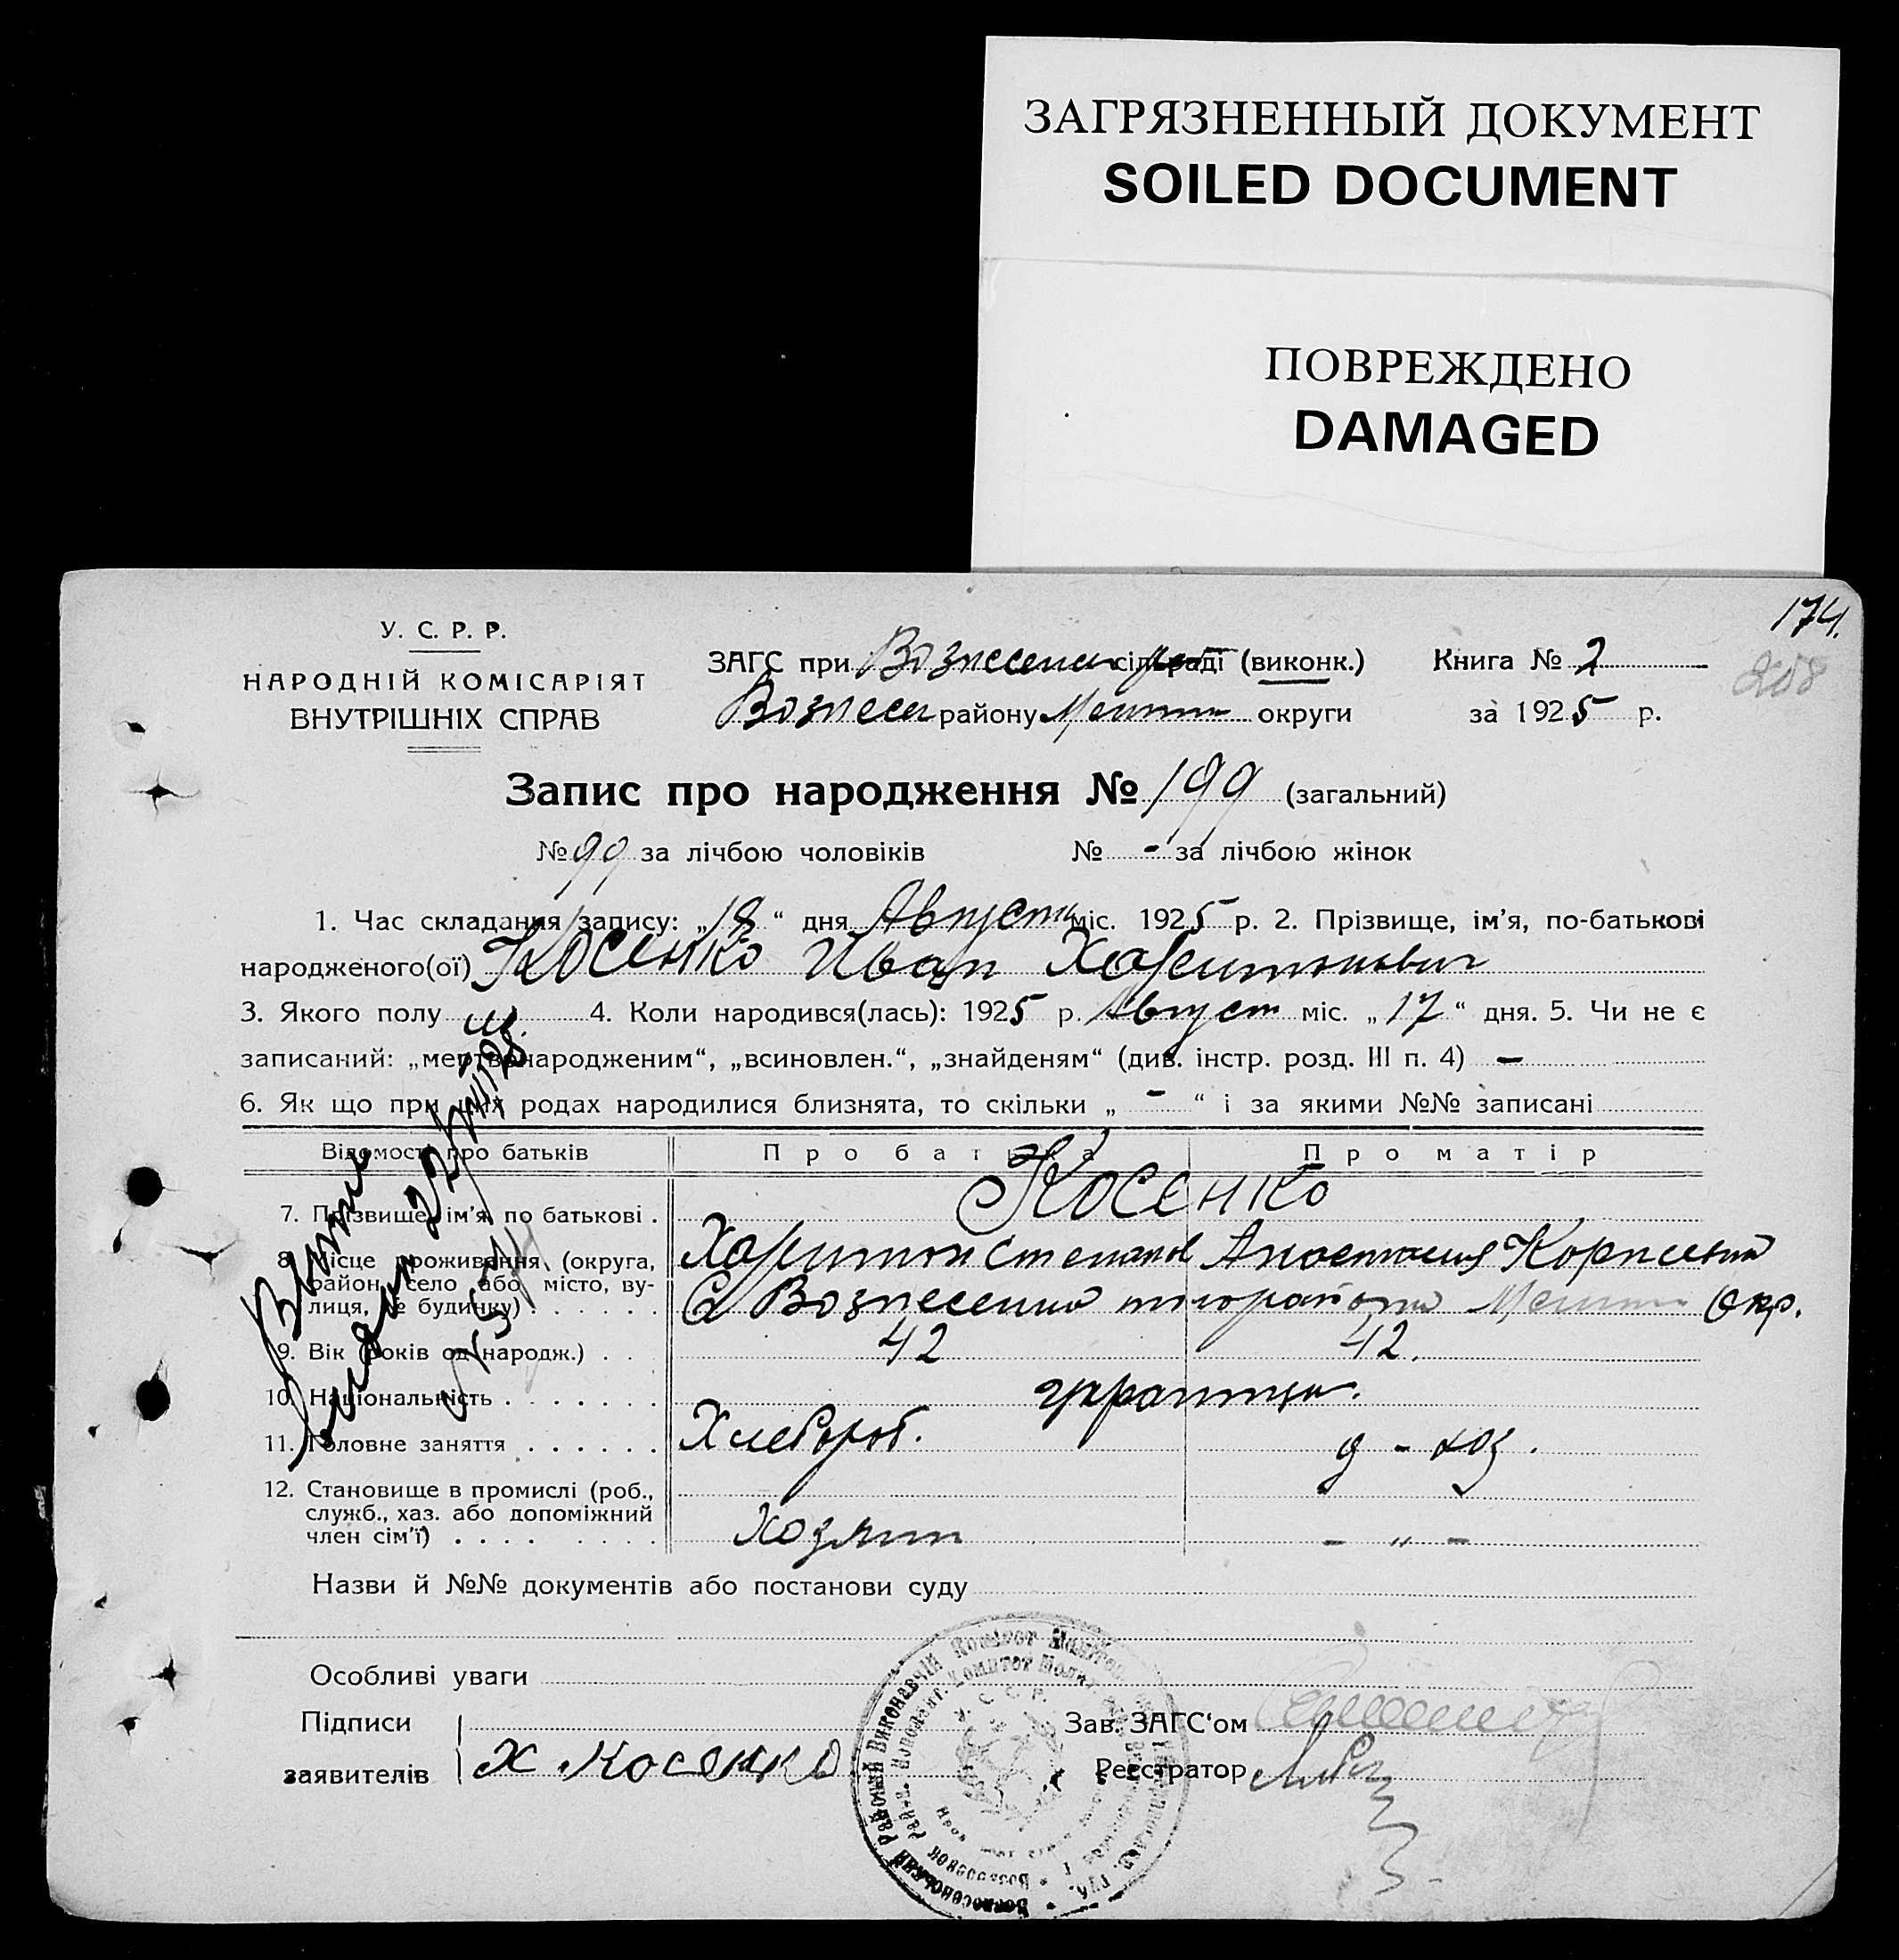 ЗАГРЯЗНЕННЫЙ ДОКУМЕНТ
SOILED DOCUMENT
ПОВРЕЖДЕНО
DAMAGED
174.
208
У. С. Р. Р.
НАРОДНІЙ КОМІСАРІЯТ
ВНУТРІШНІХ СПРАВ
ЗАГС при Вознесенск сільраді (виконк.) Книга № 2
Вознесен району Мелитоп округи за 1925 р.
Запис про народження № 199 (загальний)
№ 99 за лічбою чоловіків № - за лічбою жінок
1. Час складання запису: „18“ дня Августа міс. 1925 р. 2. Прізвище, ім'я, по-батькові
народженого(ої) Косенко Иван Харитонович
3. Якого полу м. 4. Коли народився(лась): 1925 р. Август міс. „17“ дня. 5. Чи не є
записаний: „мертвонародженим“, „всиновлен.“, „знайденям“ (див. інстр. розд. III п. 4) -
6. Як що при цих родах народилися близнята, то скільки „ - “ і за якими №№ записані
Відомості про батьків Про батька Про матір
7. Прізвище, ім'я, по батькові . Косенко
Харитон Степанов Анастасия Корнеевна
8. Місце проживання (округа,
район, село або місто, ву-
лиця, № будинку) . . . . . . С Вознесенка того района Мелитоп Окр.
9. Вік (років од народж.) . . . 42 42.
10. Національність . . . . . . . украинцы.
11. Головне заняття . . . . . . Хлебороб. д - хоз.
12. Становище в промислі (роб.,
служб., хаз. або допоміжний
член сім'ї) . . . . . . . . Хозяин - „ -
Назви й №№ документів або постанови суду
Особливі уваги
Підписи Зав. ЗАГС‘ом
заявителів Х. Косенко Реєстратор